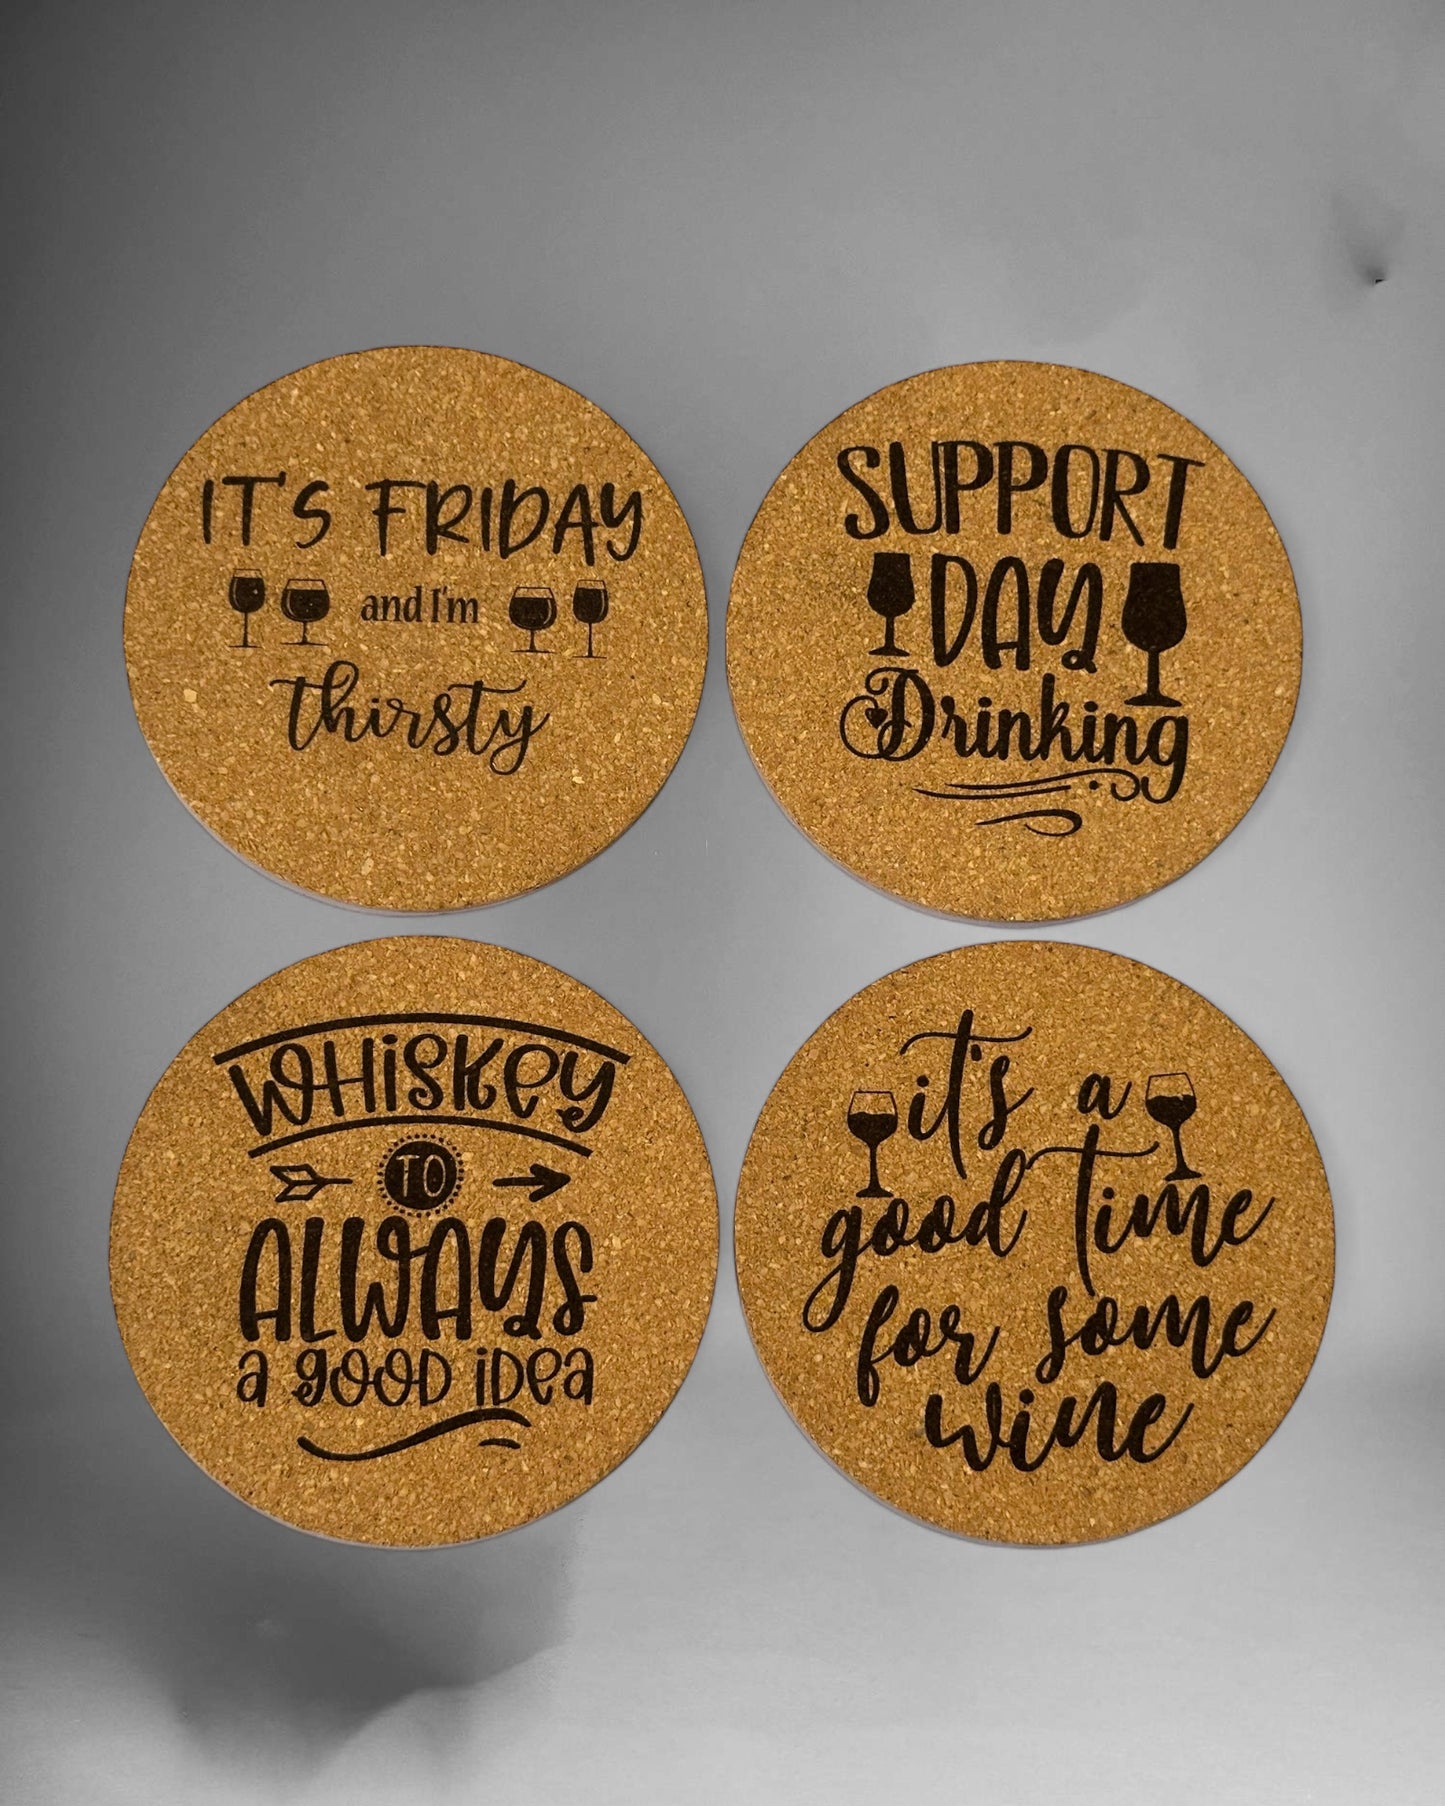 IT'S FRIDAY
and I'm
thirsty
SUPPORT
DAY
Drinking
WHiSKey
TO
ALWAYS
a gOOD iDea
it's a
good time
for some
wine